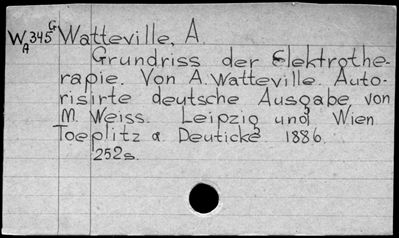 W 345 G Watteville, A.
A
Grundriss der Elektrothe-
rapie. Von A. Watteville. Auto-
risirte deutsche Ausgabe von
M. Weiss. Leipzig und Wien
Toeplitz a. Deuticke 1886.
252s.